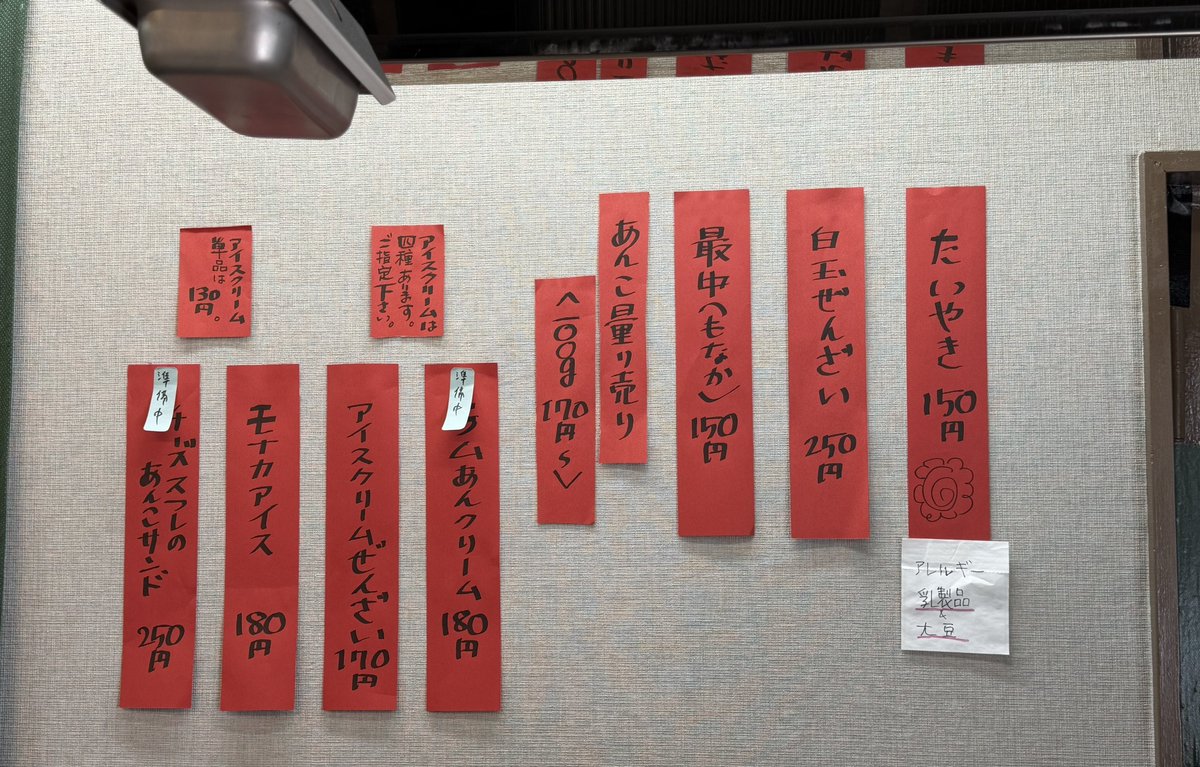 たいやき 150円
アレルギー
乳製品
&
大豆
白玉ぜんざい 250円
最中(もなか) 150円
あんこ量り売り
<100g 170円~>
アイスクリームは
四種あります。
ご指定下さい。
アイスクリーム
単品。
130円。
準備中
ムあんクリーム 180円
アイスクリームぜんざい 170円
モナカアイス 180円
準備中
トの
あんこサンド 250円